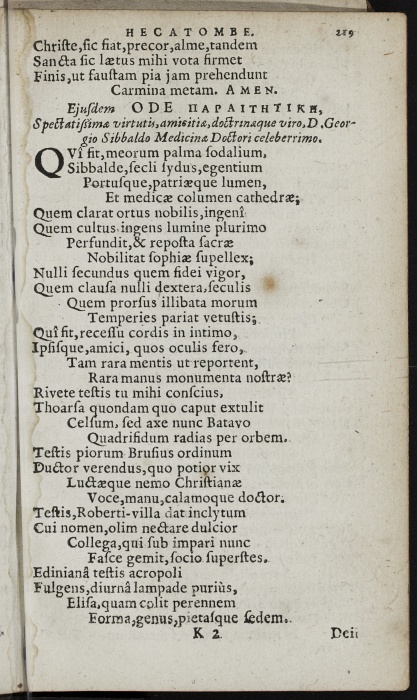 HECATOMBE. 219
Christe, sic fiat, precor, alme, tandem
Sancta sic lætus mihi vota firmet
Finis, ut faustam pia jam prehendunt
Carmina metam. AMEN.
Ejusdem ODE ΠΑΡΑΙΤΗΤΙΚΗ,
Spectatissimæ virtutis, amicitiæ, doctrinæque viro, D. Geor-
gio Sibbaldo Medicinæ Doctori celeberrimo.
QVî fit, meorum palma sodalium,
Sibbalde, secli sydus, egentium
Portusque, patriæque lumen,
Et medicæ columen cathedræ;
Quem clarat ortus nobilis, ingenî
Quem cultus ingens lumine plurimo
Perfundit, & reposta sacræ
Nobilitat sophiæ supellex;
Nulli secundus quem fidei vigor,
Quem clausa nulli dextera, seculis
Quem prorsus illibata morum
Temperies pariat vetustis;
Quî fit, recessu cordis in intimo,
Ipsisque, amici, quos oculis fero,
Tam rara mentis ut reportent,
Rara manus monumenta nostræ?
Rivete testis tu mihi conscius,
Thoarsa quondam quo caput extulit
Celsum, sed axe nunc Batavo
Quadrifidum radias per orbem.
Testis piorum Brusius ordinum
Ductor verendus, quo potior vix
Luctæque nemo Christianæ
Voce, manu, calamoque doctor.
Testis, Roberti-villa dat inclytum
Cui nomen, olim nectare dulcior
Collega, qui sub impari nunc
Fasce gemit, socio superstes.
Edinianâ testis acropoli
Fulgens, diurnâ lampade puriùs,
Elisa, quam colit perennem
Forma, genus, pietasque sedem.
K 2 Deii